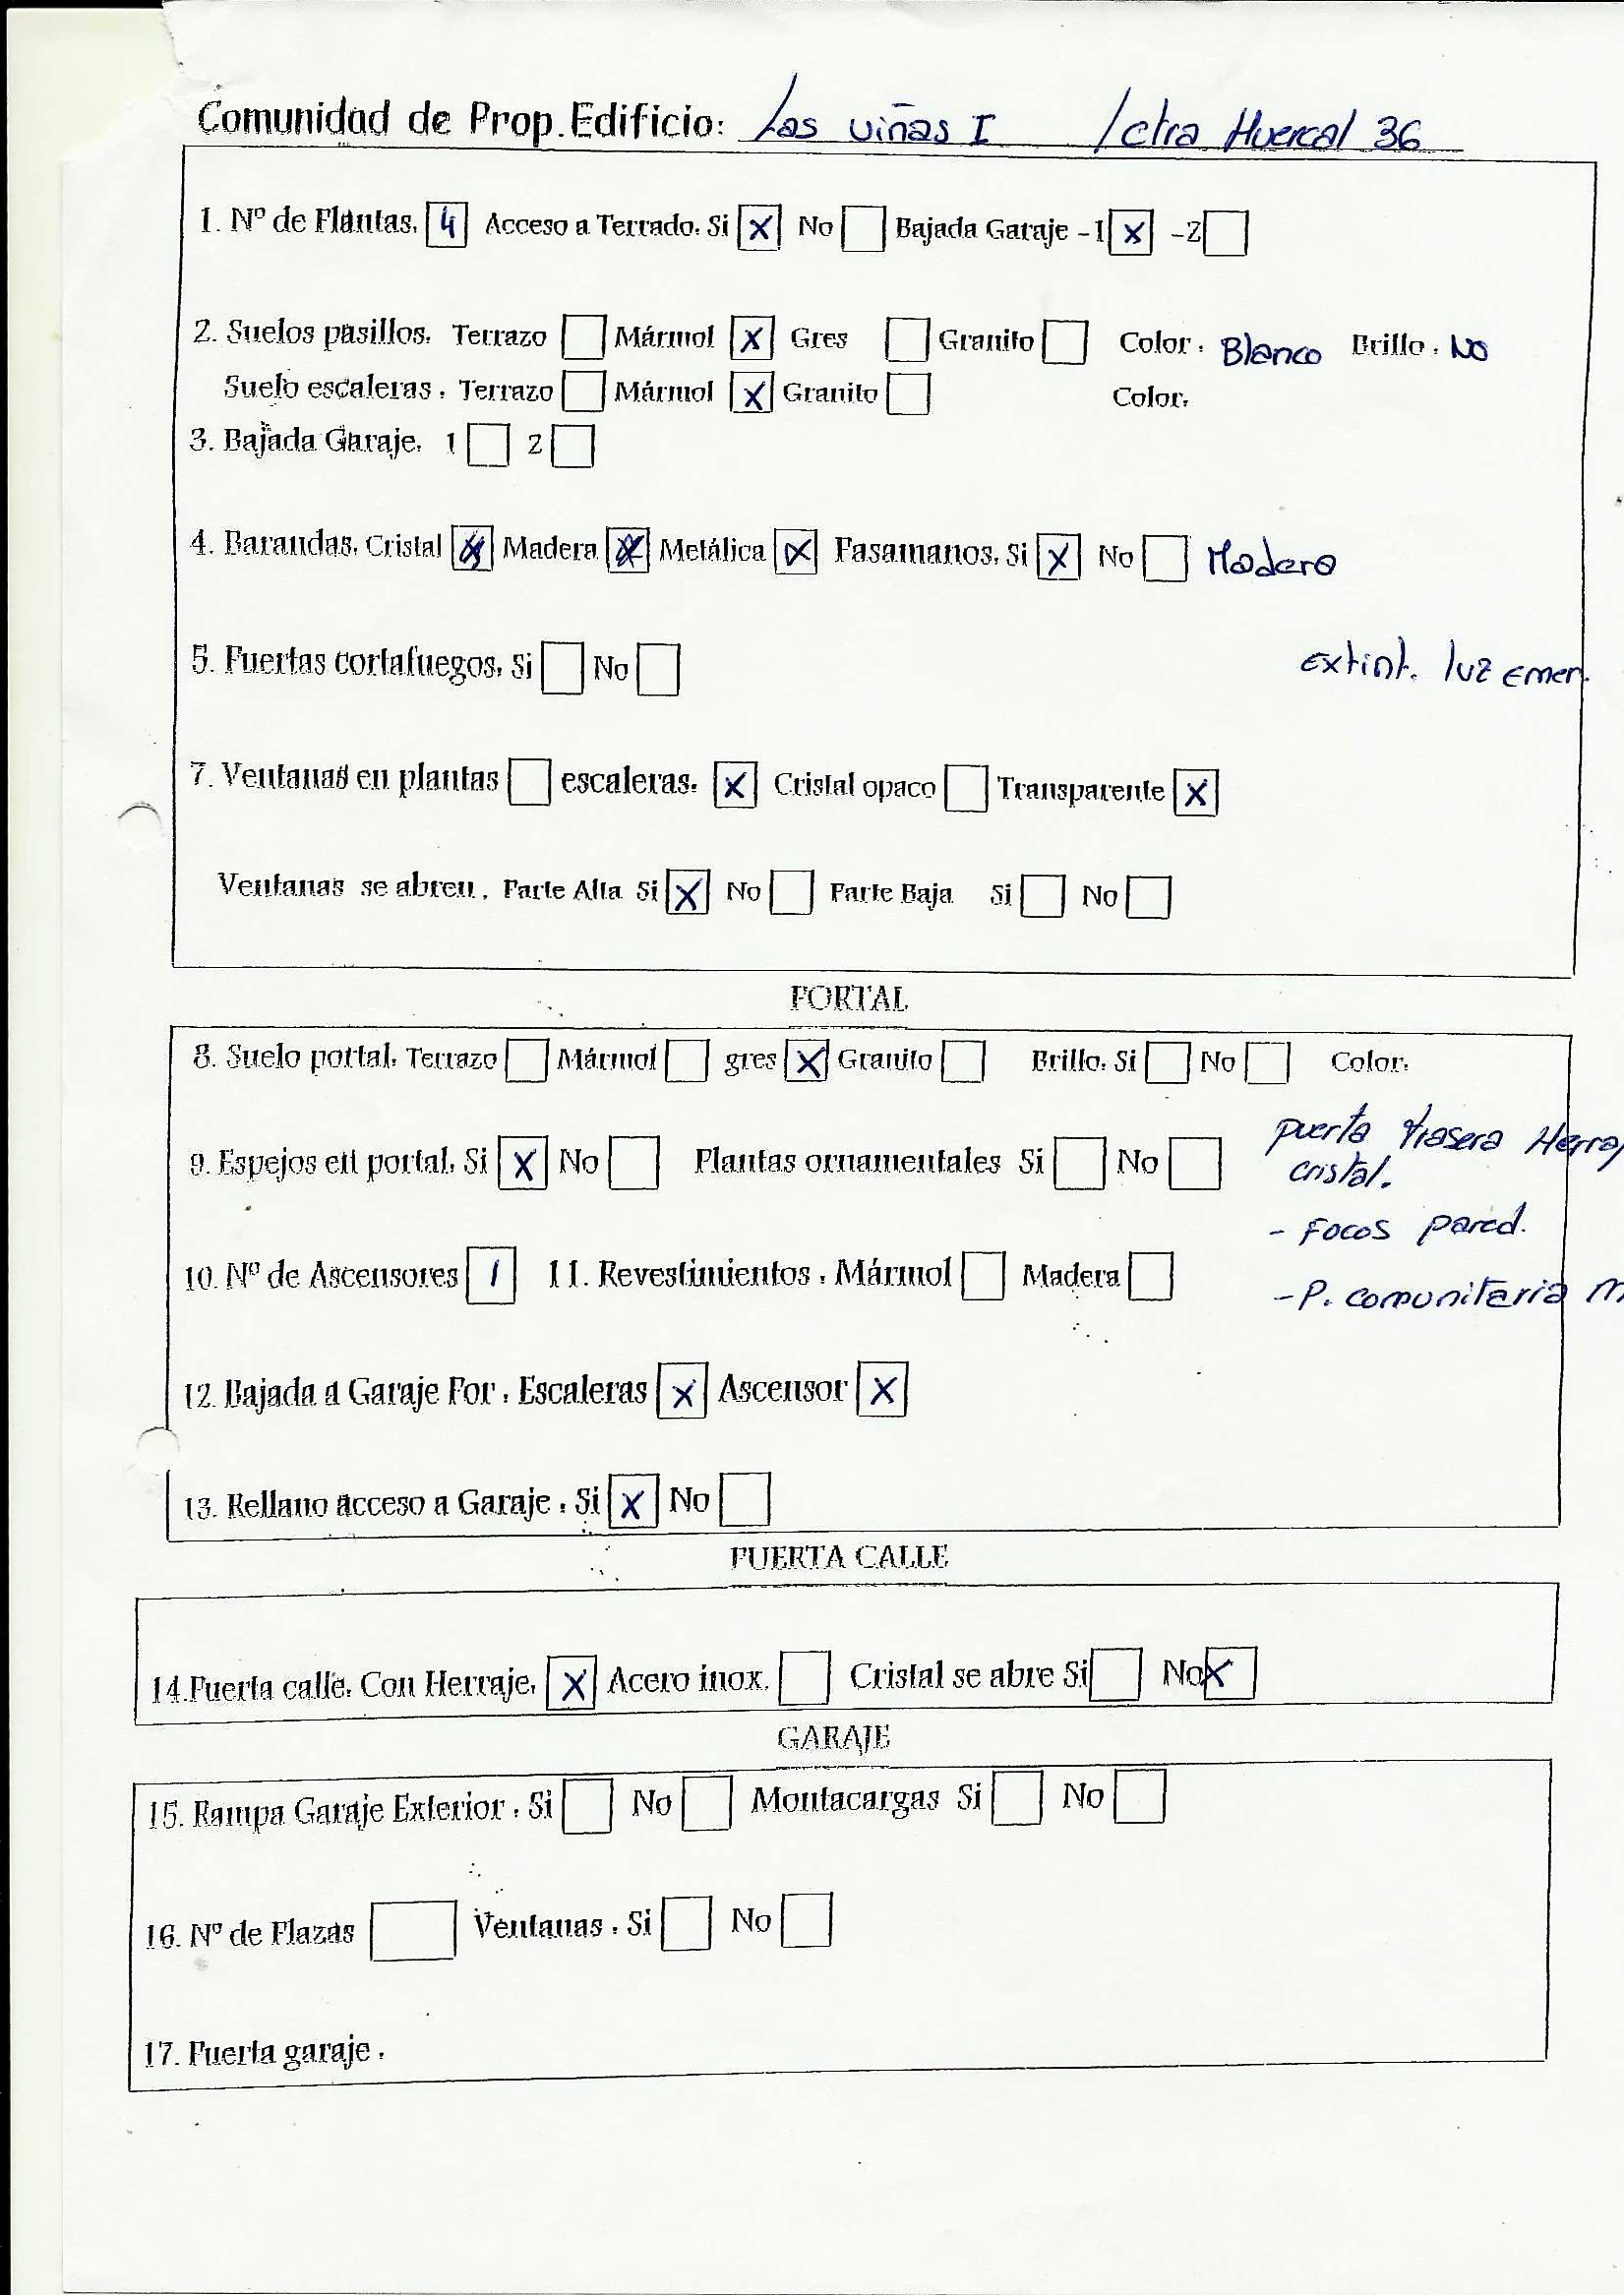 Comunidad de Prop. Edificio: Las viñas I /ctra Huercal 36
1. Nº de Plantas. 4 Acceso a Terrado. Si X No Bajada Garaje -1 X -2
2. Suelos pasillos. Terrazo Mármol X Gres Granito Color. Blanco Brillo. No
Suelo escaleras. Terrazo Mármol X Granito Color.
3. Bajada Garaje. 1 2
4. Barandas. Cristal Madera Metálica X Pasamanos. Si X No Madera
5. Puertas cortafuegos. Si No extint. luz emer.
7. Ventanas en plantas escaleras. X Cristal opaco Transparente X
Ventanas se abren. Parte Alta Si X No Parte Baja Si No
PORTAL
8. Suelo portal. Terrazo Mármol gres X Granito Brillo. Si No Color.
9. Espejos en portal. Si X No Plantas ornamentales Si No puerta trasera Herraj
cristal.
- Focos pared.
10. Nº de Ascensores 1 11. Revestimientos. Mármol Madera
- P. comunitaria
12. Bajada a Garaje Por. Escaleras X Ascensor X
13. Rellano acceso a Garaje. Si X No
PUERTA CALLE
14. Puerta calle. Con Herraje. X Acero inox. Cristal se abre Si No X
GARAJE
15. Rampa Garaje Exterior. Si No Montacargas Si No
16. Nº de Plazas Ventanas. Si No
17. Puerta garaje.